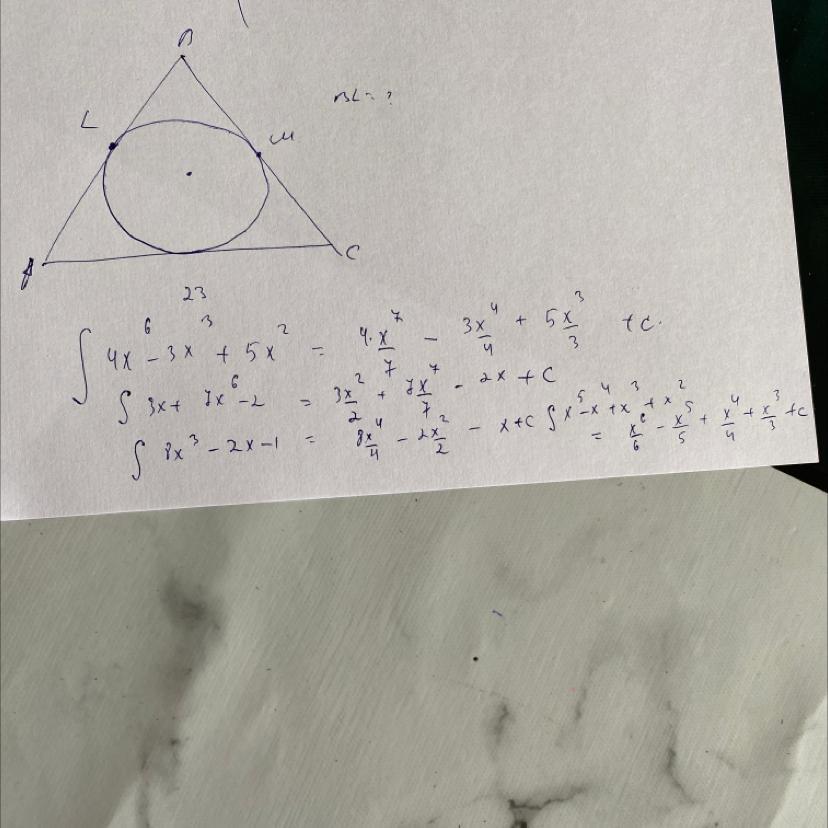 B
BL = ?
L
M
A
C
23
∫ 4x⁶ - 3x³ + 5x² = 4·x⁷/7 - 3x⁴/4 + 5x³/3 + c.
∫ 3x + 7x⁶ - 2 = 3x²/2 + 7x⁷/7 - 2x + C
∫ 8x³ - 2x - 1 = 8x⁴/4 - 2x²/2 - x + c
∫ x⁵ - x⁴ + x³ + x²
= x⁶/6 - x⁵/5 + x⁴/4 + x³/3 + c